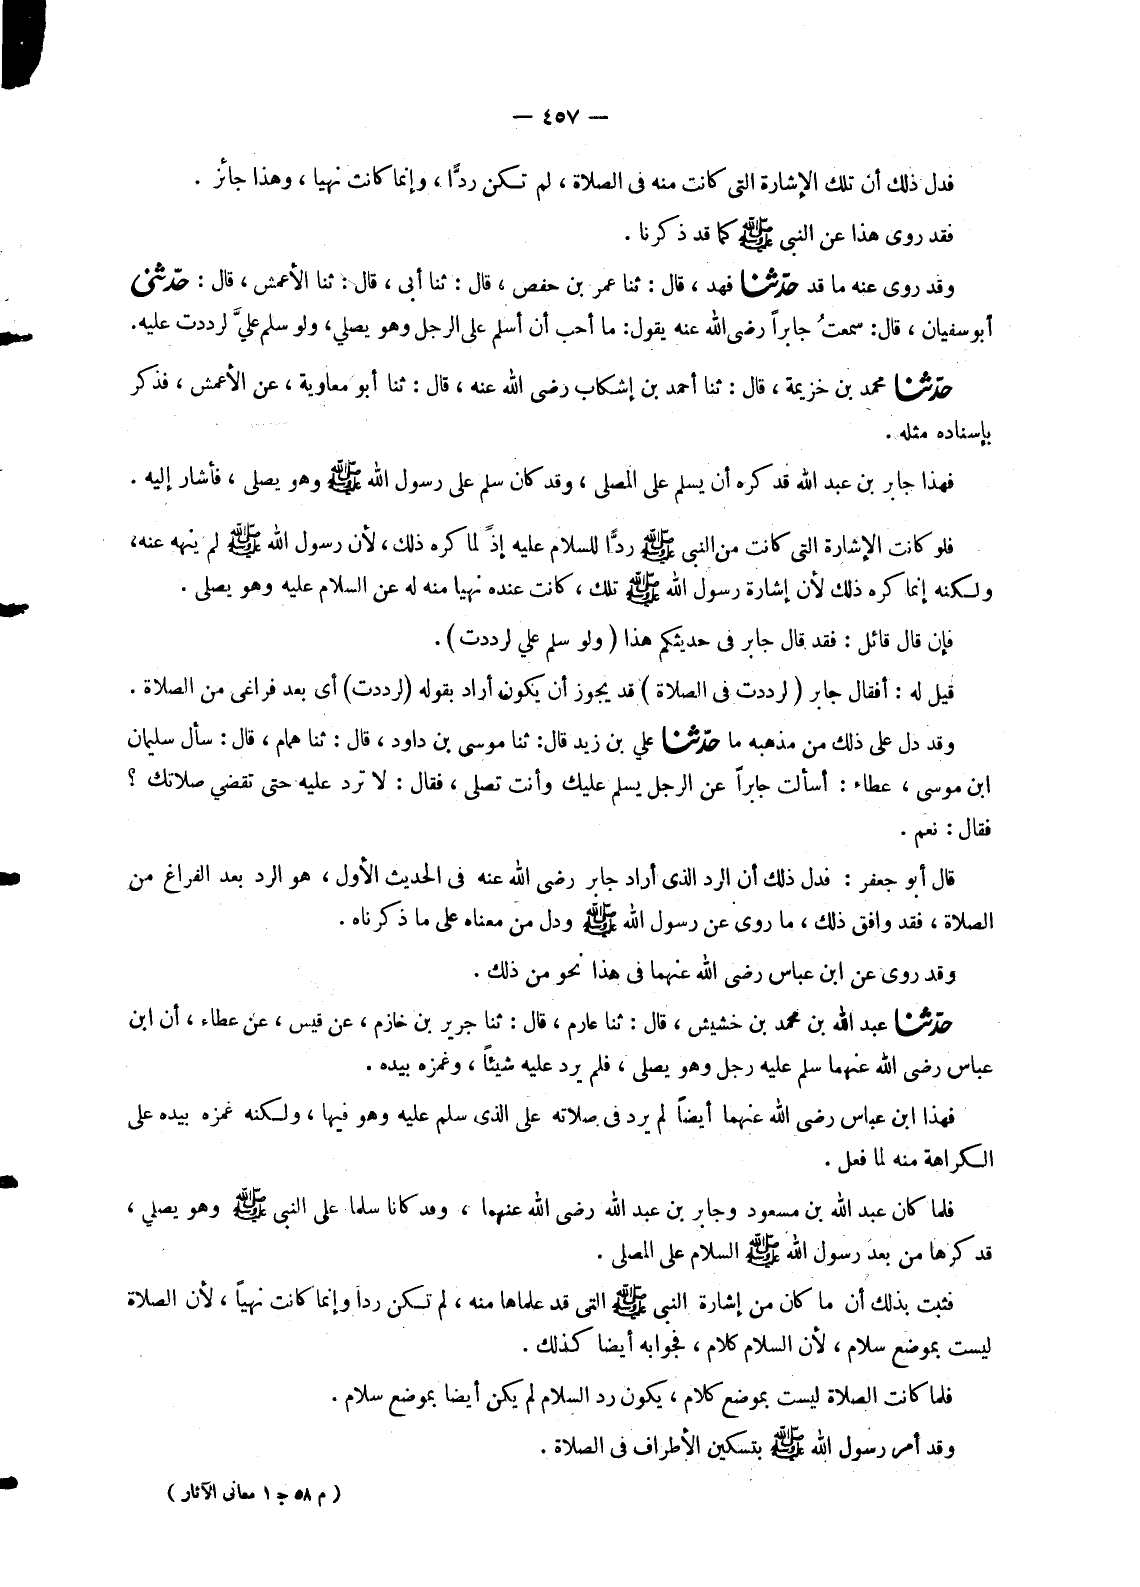 — ٤٥٧ —
فدل ذلك أن تلك الإشارة التى كانت منه فى الصلاة ، لم تـكن ردًّا ، وإنما كانت نهيا ، وهذا جائز .
فقد روى هذا عن النبى ﷺ كما قد ذكرنا .
وقد روى عنه ما قد حدّثنا فهد ، قال : ثنا عمر بن حفص ، قال : ثنا أبى ، قال : ثنا الأعمش ، قال : حدّثنى
أبو سفيان ، قال: سمعتُ جابراً رضى الله عنه يقول: ما أحب أن أسلم على الرجل وهو يصلي، ولو سلم عليَّ لرددت عليه.
حدّثنا محمد بن خزيمة ، قال : ثنا أحمد بن إشكاب رضى الله عنه ، قال : ثنا أبو معاوية ، عن الأعمش ، فذكر
بإسناده مثله .
فهذا جابر بن عبد الله قد كره أن يسلم على المصلى ، وقد كان سلم على رسول الله ﷺ وهو يصلى ، فأشار إليه .
فلو كانت الإشارة التى كانت من النبى ﷺ ردًّا للسلام عليه إذاً لما كره ذلك، لأن رسول الله ﷺ لم ينهه عنه،
ولـكنه إنما كره ذلك لأن إشارة رسول الله ﷺ تلك ، كانت عنده نهيا منه له عن السلام عليه وهو يصلى .
فإن قال قائل : فقد قال جابر فى حديثكم هذا ( ولو سلم علي لرددت ) .
قيل له : أفقال جابر ( لرددت فى الصلاة ) قد يجوز أن يكون أراد بقوله (لرددت) أى بعد فراغى من الصلاة .
وقد دل على ذلك من مذهبه ما حدّثنا علي بن زيد قال: ثنا موسى بن داود ، قال : ثنا همام ، قال : سأل سليمان
ابن موسى ، عطاء : أسألت جابراً عن الرجل يسلم عليك وأنت تصلى ، فقال : لا ترد عليه حتى تقضي صلاتك ؟
فقال : نعم .
قال أبو جعفر : فدل ذلك أن الرد الذى أراد جابر رضى الله عنه فى الحديث الأول ، هو الرد بعد الفراغ من
الصلاة ، فقد وافق ذلك ، ما روى عن رسول الله ﷺ ودل من معناه على ما ذكرناه .
وقد روى عن ابن عباس رضى الله عنهما فى هذا نحو من ذلك .
حدّثنا عبد الله بن محمد بن خشيش ، قال : ثنا عارم ، قال : ثنا جرير بن خازم ، عن قيس ، عن عطاء ، أن ابن
عباس رضى الله عنهما سلم عليه رجل وهو يصلى ، فلم يرد عليه شيئاً ، وغمزه بيده .
فهذا ابن عباس رضى الله عنهما أيضاً لم يرد فى صلاته على الذى سلم عليه وهو فيها ، ولـكنه غمزه بيده على
الـكراهة منه لما فعل .
فلما كان عبد الله بن مسعود وجابر بن عبد الله رضى الله عنهما ، وقد كانا سلما على النبى ﷺ وهو يصلي ،
قد كرها من بعد رسول الله ﷺ السلام على المصلى .
فثبت بذلك أن ما كان من إشارة النبى ﷺ التى قد علماها منه ، لم تـكن رداً وإنما كانت نهياً ، لأن الصلاة
ليست بموضع سلام ، لأن السلام كلام ، فجوابه أيضا كذلك .
فلما كانت الصلاة ليست بموضع كلام ، يكون رد السلام لم يكن أيضا بموضع سلام .
وقد أمر رسول الله ﷺ بتسكين الأطراف فى الصلاة .
( م ٥٨ ج ١ معانى الآثار )